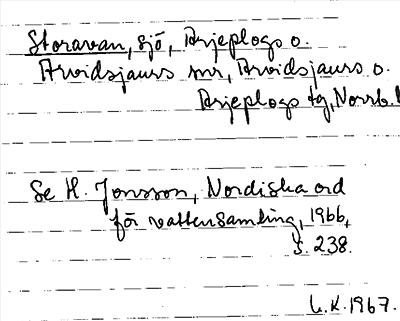 Storavan, sjö, Arjeplogs o.
Arvidsjaurs snr, Arvidsjaurs o.
Arjeplogs tg, Norrb. l
Se H. Jonsson, Nordiska ord
för vattensamling, 1966,
s. 238.
L.K. 1967.